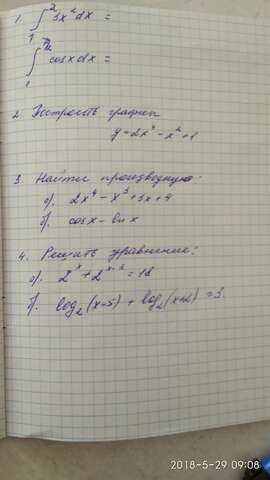 1. ∫₁² 3x² dx =
∫₁^{π/2} cosx dx =
2 Построить график
y = 2x⁴ - x² + 1
3. Найти производную:
а). 2x⁴ - x³ + 3x + 4
б). cosx - ln x
4. Решить уравнение:
а). 2ˣ + 2ˣ⁻² = 12
б). log₂(x-5) + log₂(x+2) = 3.
2018-5-29 09:08